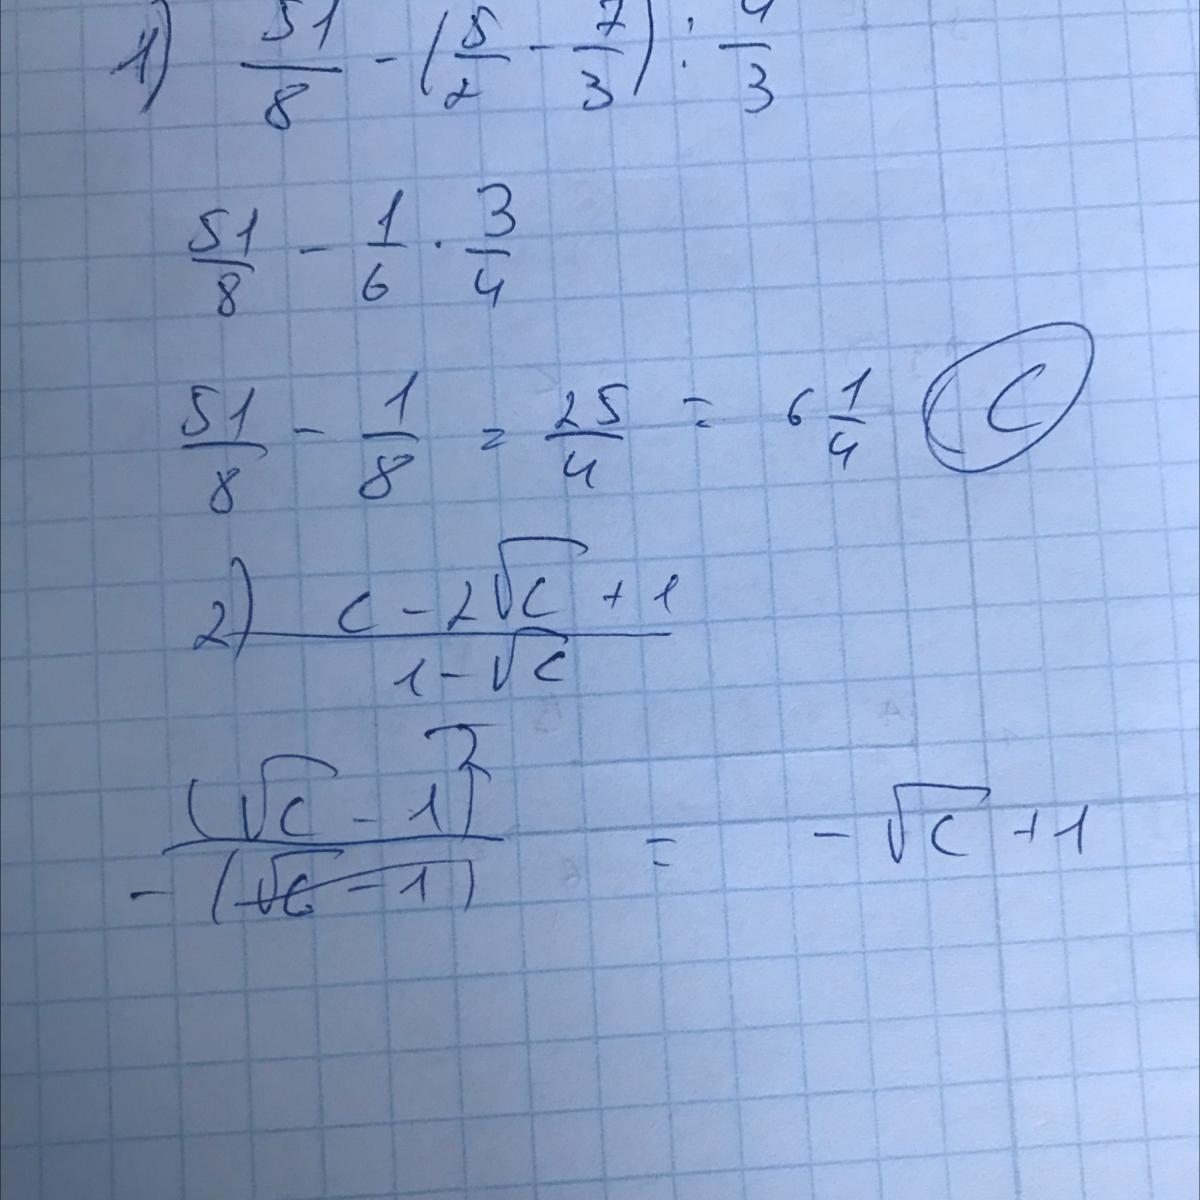 1) 51/8 - (5/2 - 7/3) : 4/3
51/8 - 1/6 · 3/4
51/8 - 1/8 = 25/4 = 6 1/4 C
2) (c - 2√c + 1)/(1 - √c)
(√c - 1)²/-(√c - 1) = -√c + 1